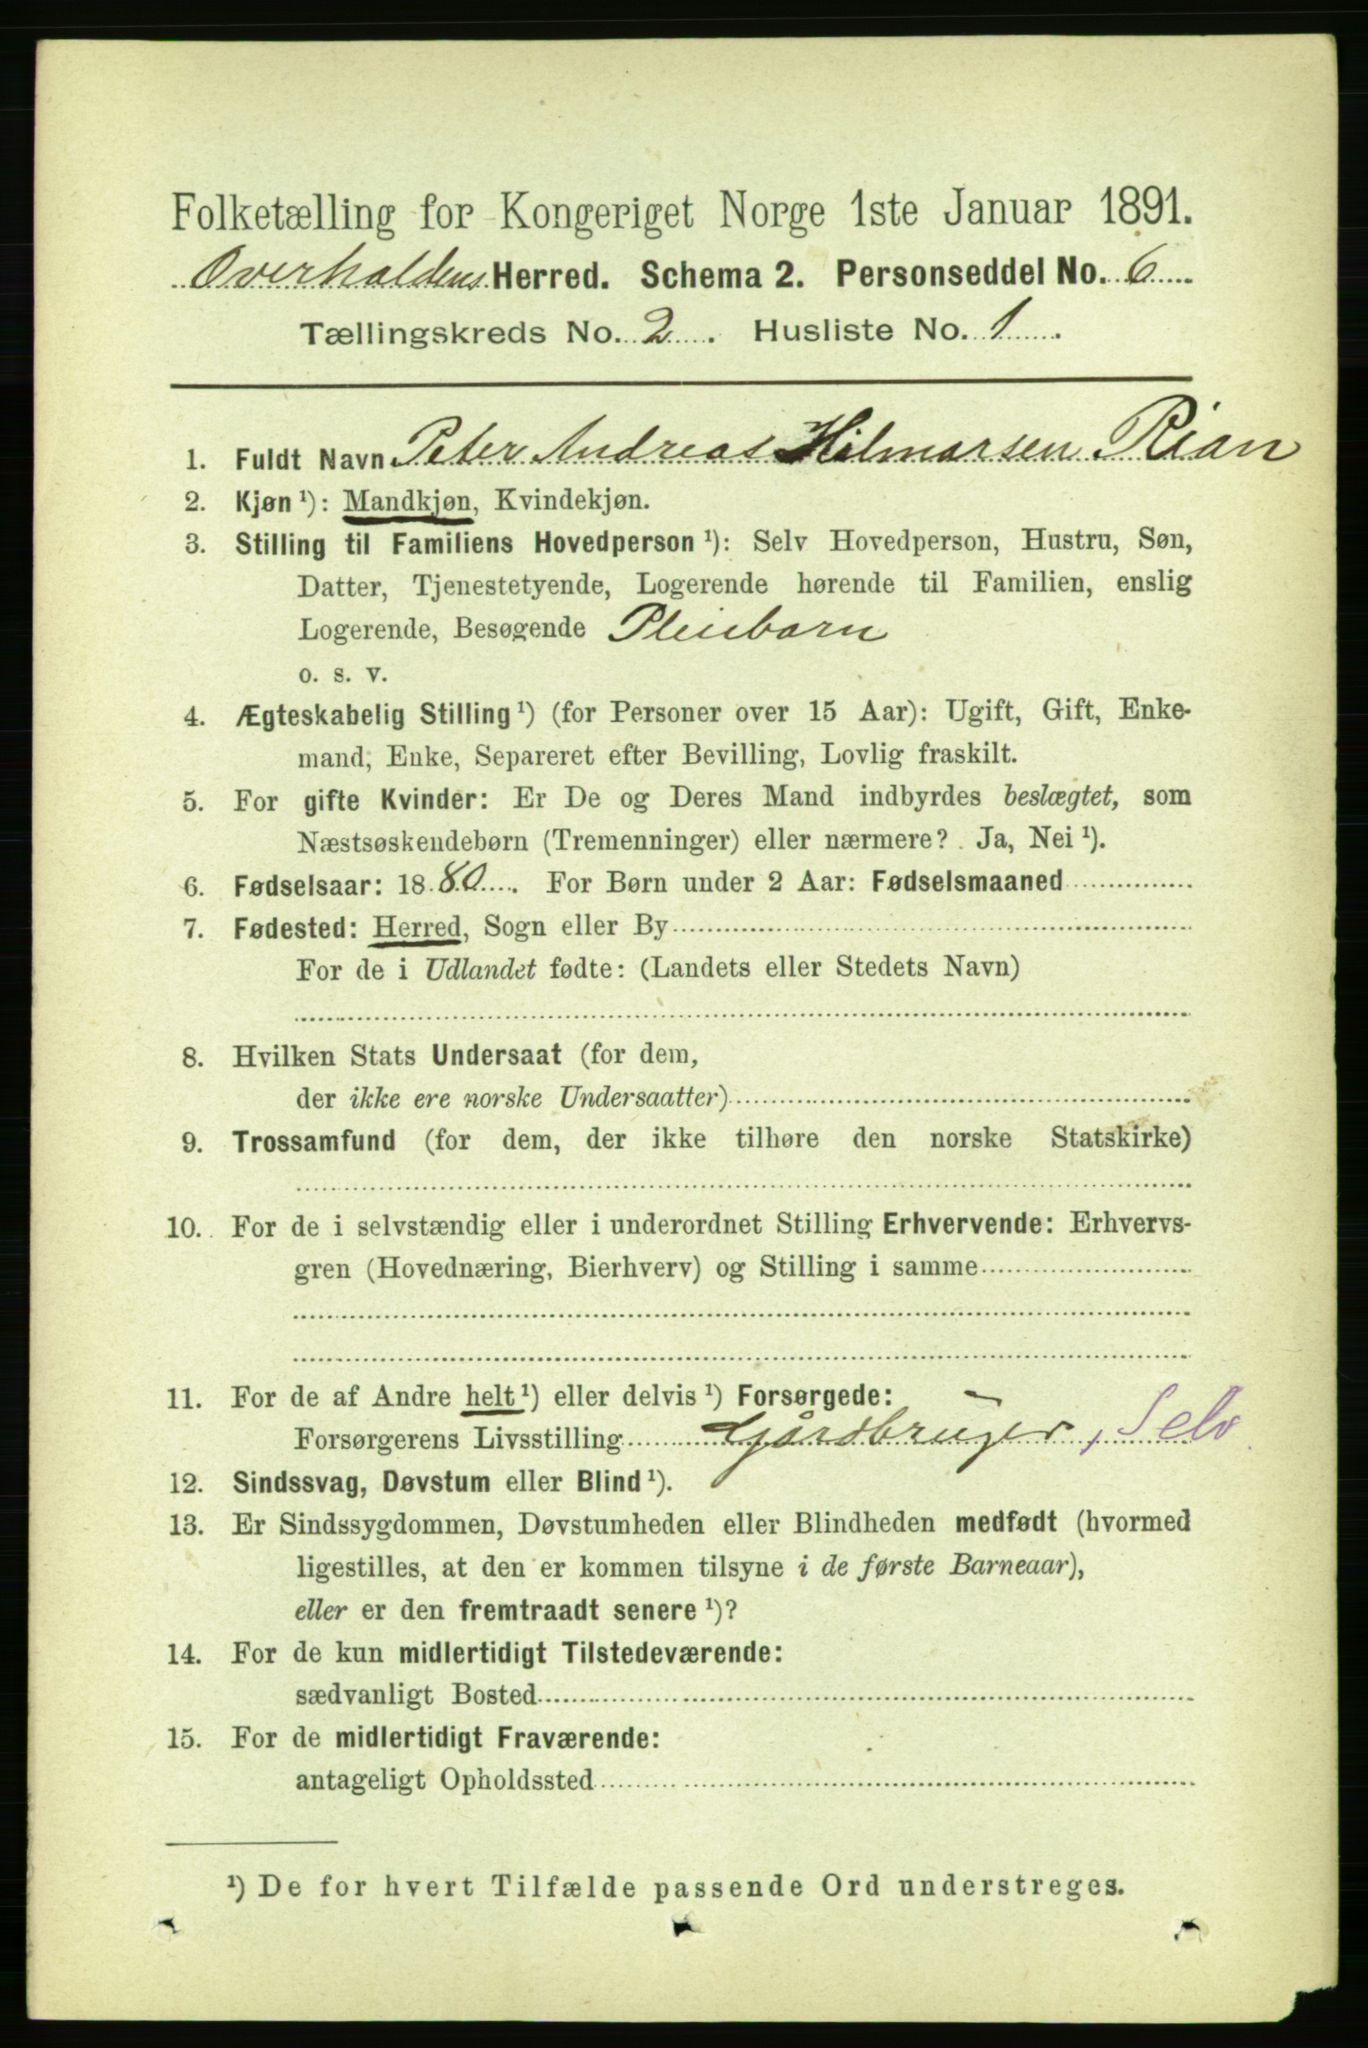 Folketælling for Kongeriget Norge 1ste Januar 1891.
Overhaldens Herred. Schema 2. Personseddel No. 6
Tællingskreds No. 2. Husliste No. 1.
1. Fuldt Navn Peter Andreas Hilmarsen Rian
2. Kjøn ¹): Mandkjøn, Kvindekjøn.
3. Stilling til Familiens Hovedperson ¹): Selv Hovedperson, Hustru, Søn,
Datter, Tjenestetyende, Logerende hørende til Familien, enslig
Logerende, Besøgende Pleiebarn
o. s. v.
4. Ægteskabelig Stilling ¹) (for Personer over 15 Aar): Ugift, Gift, Enke-
mand, Enke, Separeret efter Bevilling, Lovlig fraskilt.
5. For gifte Kvinder: Er De og Deres Mand indbyrdes beslægtet, som
Næstsøskendebørn (Tremenninger) eller nærmere? Ja, Nei ¹).
6. Fødselsaar: 1880. For Børn under 2 Aar: Fødselsmaaned
7. Fødested: Herred, Sogn eller By
For de i Udlandet fødte: (Landets eller Stedets Navn)
8. Hvilken Stats Undersaat (for dem,
der ikke ere norske Undersaatter)
9. Trossamfund (for dem, der ikke tilhøre den norske Statskirke)
10. For de i selvstændig eller i underordnet Stilling Erhvervende: Erhvervs-
gren (Hovednæring, Bierhverv) og Stilling i samme
11. For de af Andre helt ¹) eller delvis ¹) Forsørgede:
Forsørgerens Livsstilling Gårdbruger, Selv
12. Sindssvag, Døvstum eller Blind ¹).
13. Er Sindssygdommen, Døvstumheden eller Blindheden medfødt (hvormed
ligestilles, at den er kommen tilsyne i de første Barneaar),
eller er den fremtraadt senere ¹)?
14. For de kun midlertidigt Tilstedeværende:
sædvanligt Bosted
15. For de midlertidigt Fraværende:
antageligt Opholdssted
¹) De for hvert Tilfælde passende Ord understreges.